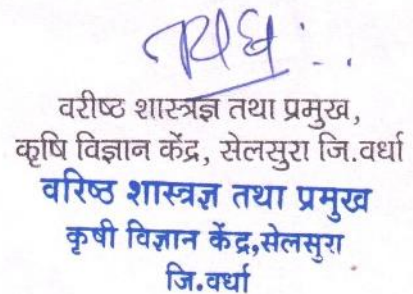 वरीष्ठ शास्त्रज्ञ तथा प्रमुख,
कृषि विज्ञान केंद्र, सेलसुरा जि.वर्धा
वरिष्ठ शास्त्रज्ञ तथा प्रमुख
कृषी विज्ञान केंद्र,सेलसुरा
जि.वर्धा